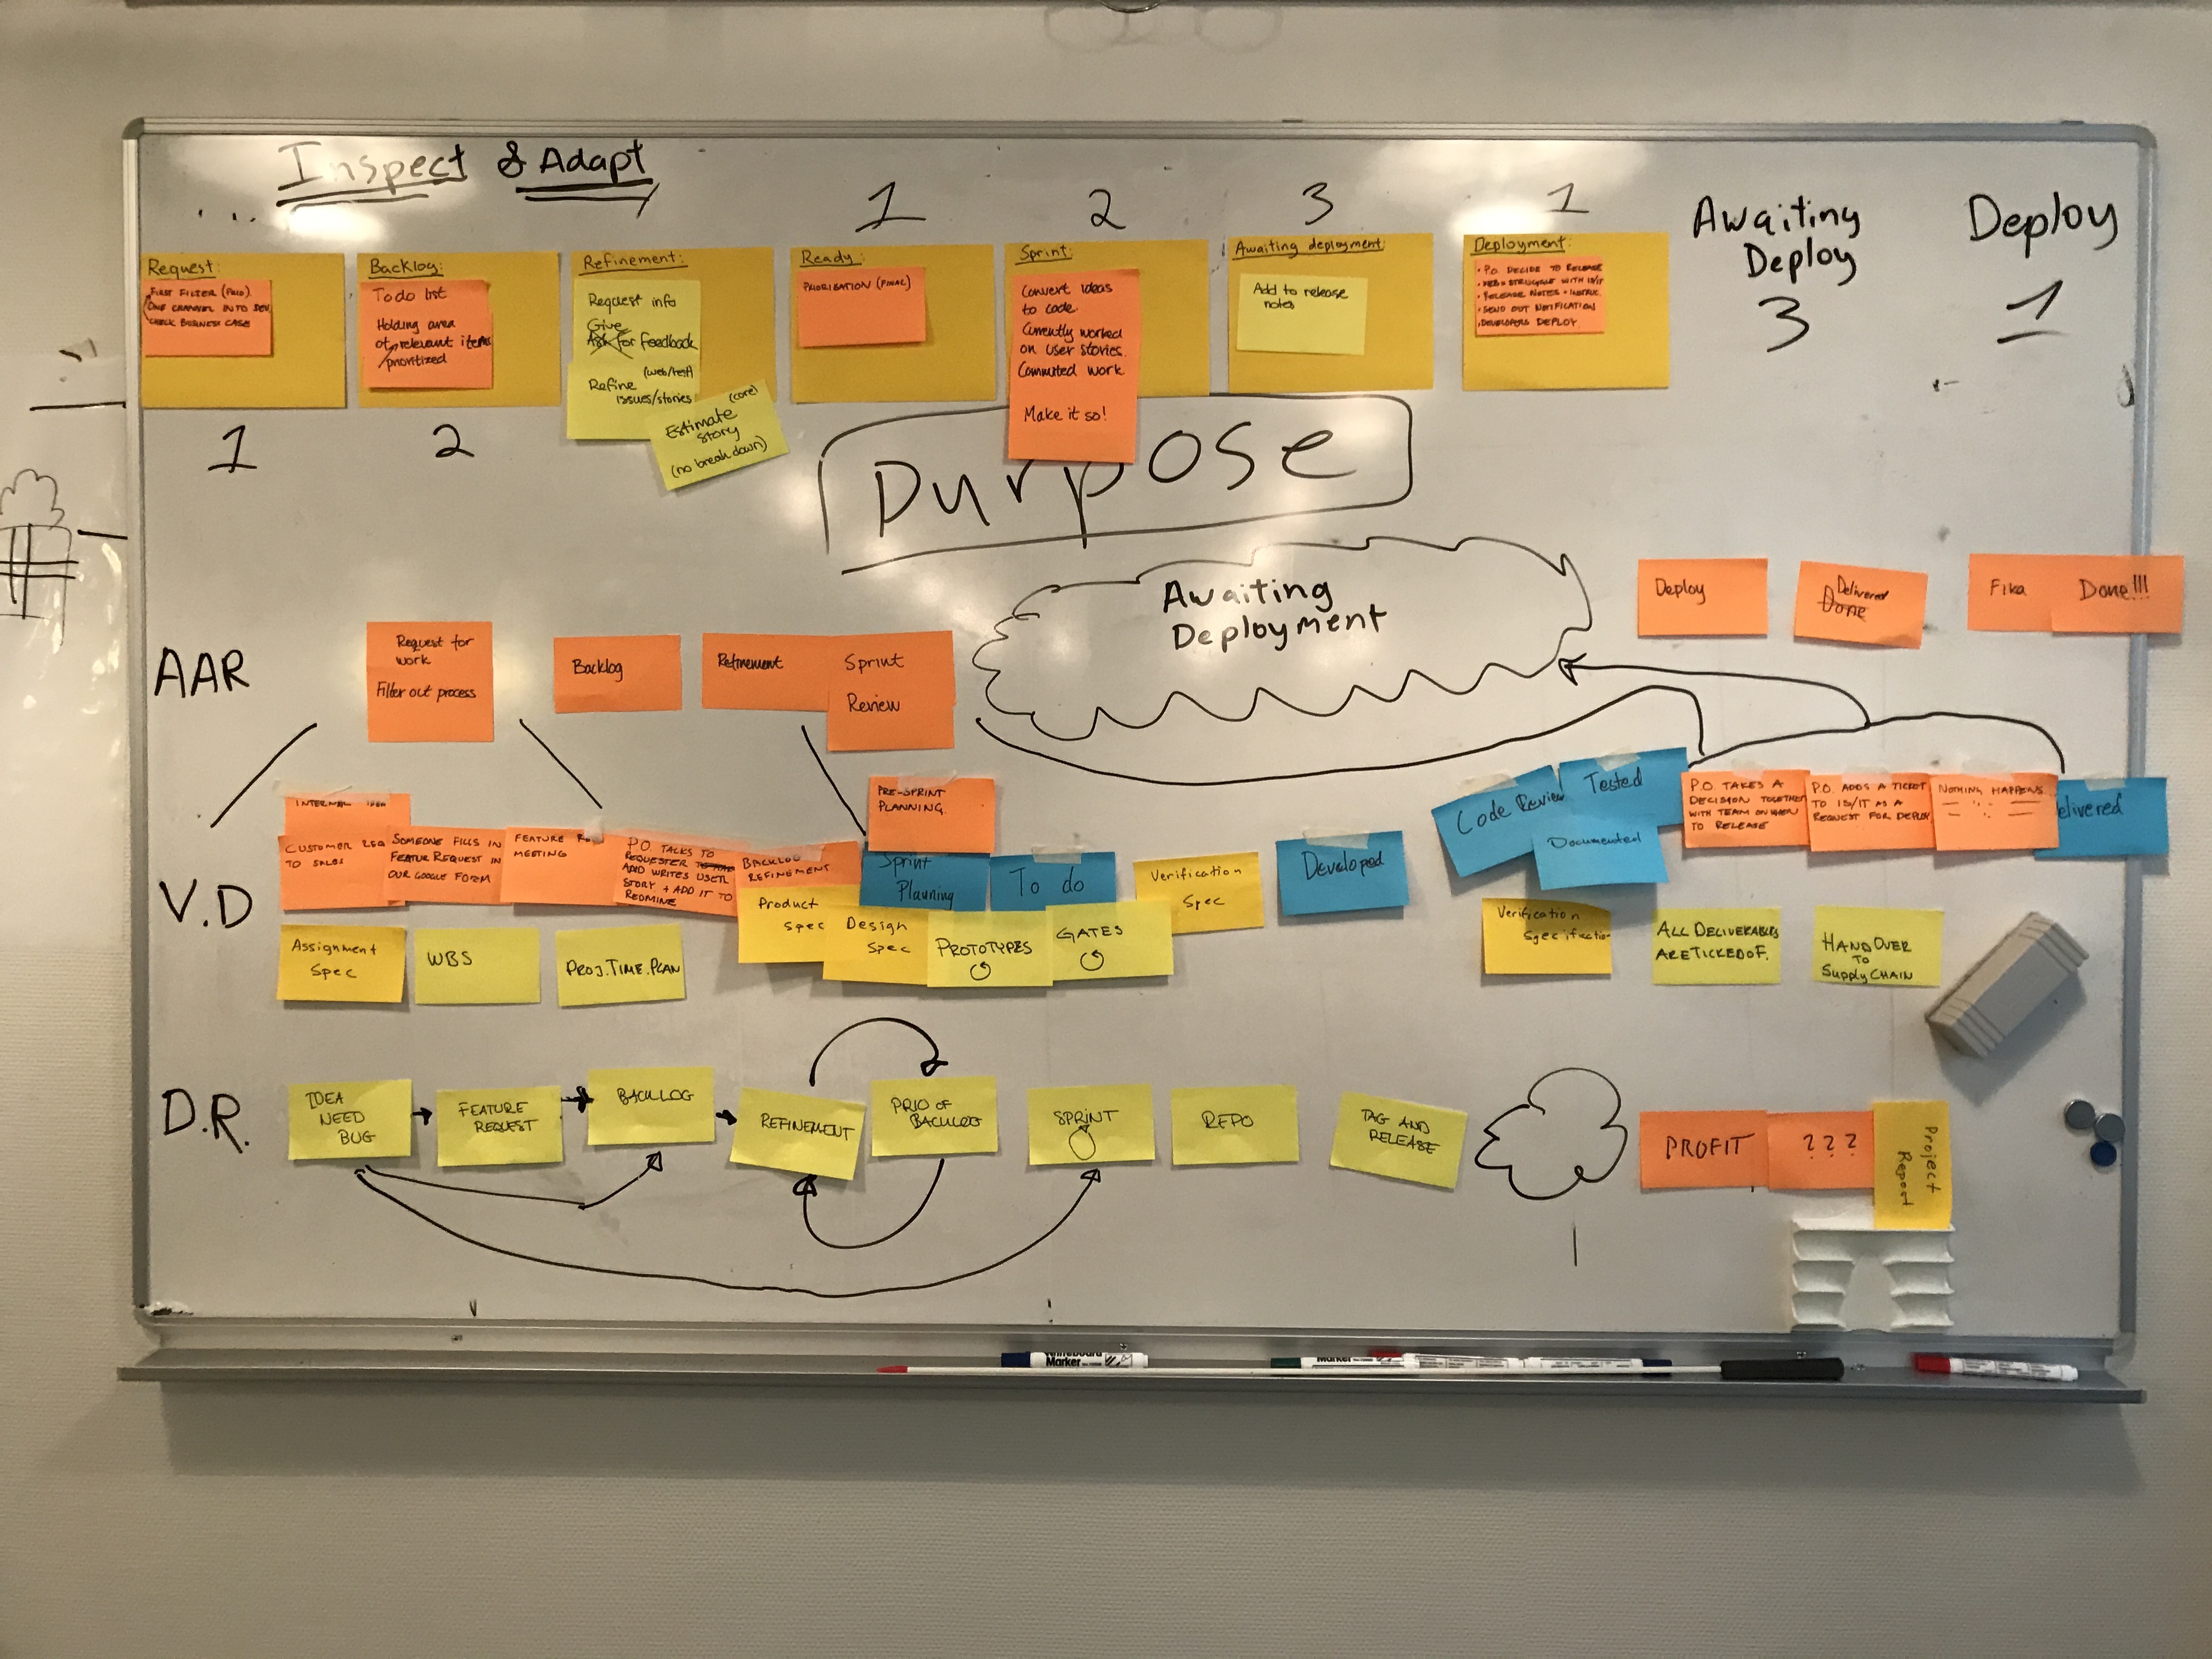 Inspect & Adapt
...
1
2
3
1
Awaiting
Deploy
3
Deploy
1
Request:
FIRST FILTER (PRIO)
ONE CHANNEL INTO DEV.
CHECK BUSINESS CASE
1
Backlog:
Todo list
Holding area
of relevant items
/prioritized
2
Refinement:
Request info
Give
Ask for feedback
(web/test)
Refine
issues/stories
(core)
Estimate
story
(no break down)
Ready:
PRIORISATION (FINAL)
Sprint:
Convert ideas
to code.
Currently worked
on user stories.
Commited work
Make it so!
Awaiting deployment:
Add to release
notes
Deployment:
• P.O. DECIDE TO RELEASE
STRUGGLE WITH IS/IT
• RELEASE NOTES + INSTRUC.
• SEND OUT NOTIFICATION
• DEVELOPERS DEPLOY.
Purpose
AAR
Request for
work
Filter out process
Backlog
Refinement
Sprint
Review
Awaiting
Deployment
Deploy
Delivered
Done
Fika
Done!!!
V.D
INTERNAL IDEA
CUSTOMER REQ
TO SALES
SOMEONE FILLS IN
FEATUR REQUEST IN
OUR GOOGLE FORM
FEATURE
MEETING
P.O. TALKS TO
REQUESTER
AND WRITES USER
STORY + ADD IT TO
REDMINE
BACKLOG
REFINEMENT
PRE-SPRINT
PLANNING.
Sprint
Planning
To do
Verification
Spec
Developed
Code Review
Tested
Documented
P.O. TAKES A
DECISION TOGETHER
WITH TEAM ON WHEN
TO RELEASE
P.O. ADDS A TICKET
TO IS/IT AS A
REQUEST FOR DEPLOY
NOTHING HAPPENS
elivered
Assignment
Spec
WBS
PROJ.TIME.PLAN
Product
spec
Design
Spec
PROTOTYPES
GATES
Verification
Specification
ALL DELIVERABLES
ARE TICKED OF.
HAND OVER
TO
Supply CHAIN
D.R.
IDEA
NEED
BUG
FEATURE
REQUEST
BACKLOG
REFINEMENT
PRIO OF
BACKLOG
SPRINT
REPO
TAG AND
RELEASE
PROFIT
???
Project
Report
Whiteboard
Marker
Marker